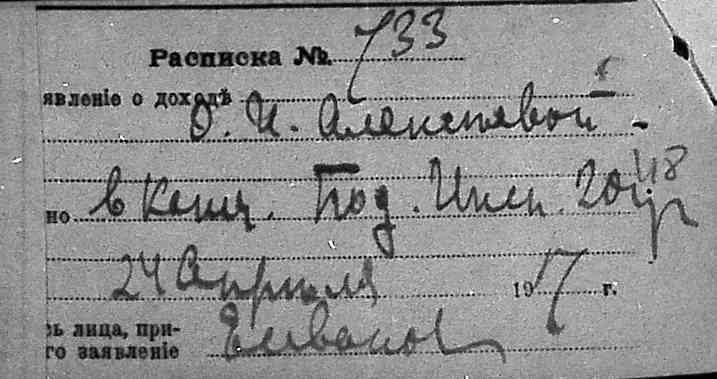 Расписка №. 733
явленіе о доходѣ
О. И. Алексѣевой
но в Канц. Под. Инсп. 20 уч
24 Апрѣля 1917 г.
ь лица, при-
го заявленіе